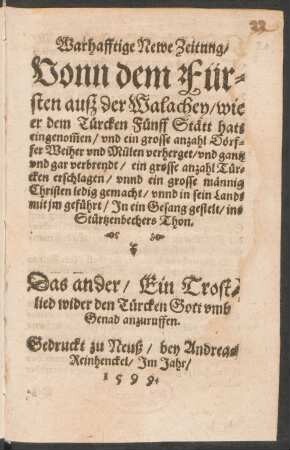 22
Warhafftige Newe Zeitung/
Vonn dem Für-
sten auß der Walachey/ wie
er dem Türcken Fünff Stätt hats
eingenom̃en/ vnd ein grosse anzahl Dörf-
fer Weiher vnd Mülen verherget/ vnd gantz
vnd gar verbrendt/ ein grosse anzahl Tür-
cken erschlagen/ vnnd ein grosse männig
Christen ledig gemacht/ vnnd in sein Lands
mit jm geführt/ In ein Gesang gestelt/ ins
Stürtzenbechers Thon.
Das ander/ Ein Trost-
lied wider den Türcken Gott vmb
Genad anzuruffen.
Gedruckt zu Neuß/ bey Andreas
Reinhenckel/ Im Jahr/
1599.